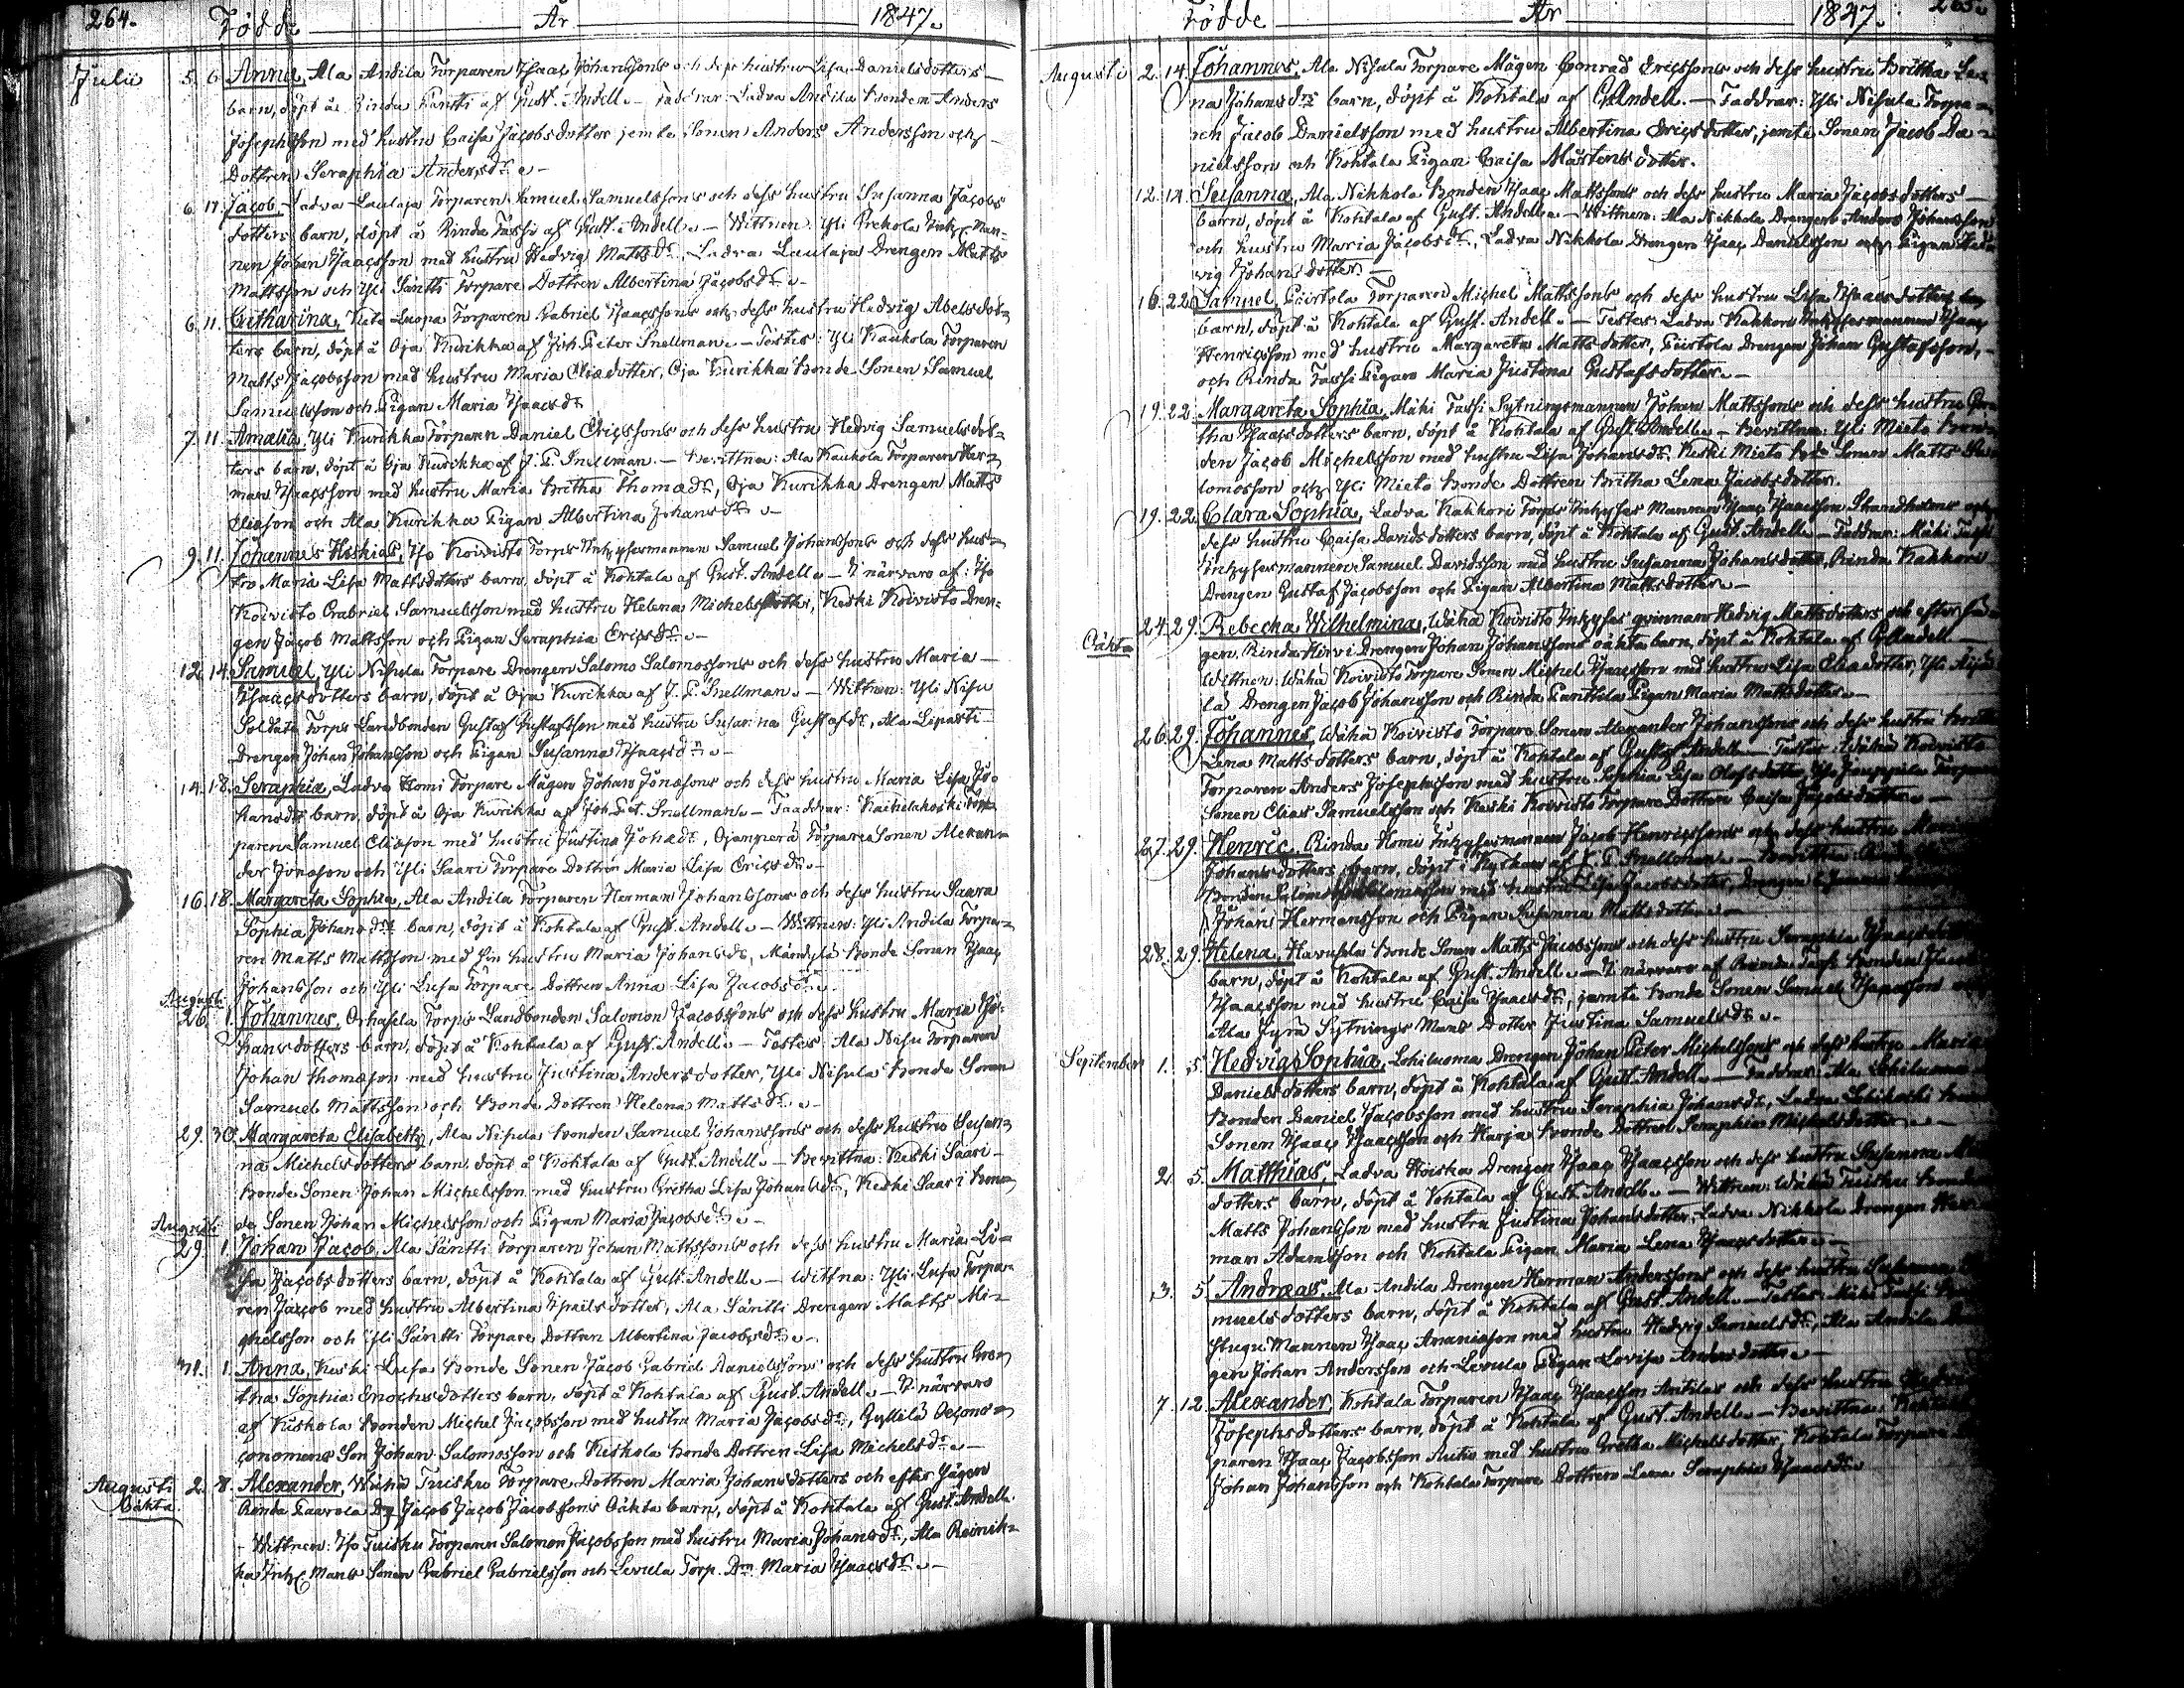 264. Födde År 1847.
Julii 5. 6. Anna, Ala Andila Torparen Isaac Johanssons och dess hustru Lisa Danielsdotters
barn, döpt å Rinda Pantti af Gust. Andell. – Faddrar: Ladva Andila Bonden Anders
Josephsson med hustru Caisa Jacobsdotter jemte Sonen Anders Andersson och
Dottren Seraphia Andersdr. –
6. 11. Jacob, Ladva Laulaja Torparen Samuel Samuelssons och dess hustru Susanna Jacobs
dotters barn, döpt å Rinda Tassi af Gust. Andell. – Wittnen: Yli Prekola Inh. Man-
nen Johan Isaacsson med hustru Hedvig Mattsdr., Ladva Laulaja Drengen Matts
Mattsson och Yli Säntti Torpare Dottren Albertina Jacobsdr. –
6. 11. Catharina, Luopa Torparen Gabriel Isaacssons och dess hustru Hedvig Abelsdot-
ters barn, döpt å Oja Kurikka af Joh. Peter Snellman. – Testes: Yli Kaukola Torparen
Matts Jacobsson med hustru Maria Eliædotter, Oja Kurikka Bonde Sonen Samuel
Samuelsson och Pigan Maria Isaacsdr.
7. 11. Amalia, Yli Kurikka Torparen Daniel Ericssons och dess hustru Hedvig Samuelsdot-
ters barn, döpt å Oja Kurikka af J. P. Snellman. – Bevittna: Ala Kaukola Torparen Her-
man Isaacsson med hustru Maria Britha Thomædr., Oja Kurikka Drengen Matts
Eliasson och Ala Kurikka Pigan Albertina Johansdr. –
9. 11. Johannes Heskias, Iso Koivisto Torps Inhysesmannen Samuel Johanssons och dess hus-
tru Maria Lisa Mattsdotters barn, döpt å Kohtala af Gust. Andell. – I närvaro af: Iso
Koivisto Gabriel Samuelsson med hustru Helena Michelsdotter, Keski Koivisto Dren-
gen Jacob Mattsson och Pigan Seraphia Ericsdr. –
12. 14. Samuel, Yli Nisula Torpare Drengen Salomo Salomossons och dess hustru Maria
Isaacsdotters barn, döpt å Oja Kurikka af J. P. Snellman. – Wittnen: Yli Nisu
Soldate Torps Landbonden Gustaf Gustafsson med hustru Susanna Gustafsdr., Ala Liparti
Drengen Johan Johansson och Pigan Susanna Isaacsdr. –
14. 18. Seraphia, Ladva Homi Torpare Mågen Johan Jonassons och dess hustru Maria Lisa Jo-
hansdrs barn, döpt å Oja Kurikka af Joh. Pet. Snellman. – Faddrar: Kaihelahoski Tor-
paren Samuel Eliasson med hustru Justina Johædr., Ojanperä Torpare Sonen Alexan-
der Jonasson och Yli Saari Torpare Dottren Maria Lisa Ericsdr. –
16. 18. Margareta Sophia, Ala Andila Torparen Herman Johanssons och dess hustru Saara
Sophia Johansdrs barn, döpt å Kohtala af Gust. Andell. – Wittnen: Yli Andila Torpa-
ren Matts Mattsson med sin hustru Maria Johansdr., Mäntylä Bonde Sonen Isaac
Johansson och Yli Lusa Torpare Dottren Anna Lisa Jacobsdr. –
Augusti
26. 1. Johannes, Orhasela Torps Landbonden Salomon Jacobssons och dess hustru Maria Jo-
hansdotters barn, döpt å Kohtala af Gust. Andell. – Testes: Ala Nisu Torparen
Johan Thomasson med hustru Justina Andersdotter, Yli Nisula Bonde Sonen
Samuel Mattsson och Bonde Dottren Helena Mattsdr. –
29. 30. Margareta Elisabeth, Ala Nisula Bonden Samuel Johanssons och dess hustru Susan-
na Michelsdotters barn, döpt å Kohtala af Gust. Andell. – Bevittna: Keski Saari
Bonde Sonen Johan Michelsson med hustru Gretha Lisa Johansdr., Keski Saari Bon-
de Sonen Johan Michelsson och Pigan Maria Jacobsdr. –
Augusti
29. 1. Johan Jacob, Ala Säntti Torparen Johan Mattssons och dess hustru Maria Li-
sa Jacobsdotters barn, döpt å Kohtala af Gust. Andell. – Wittna: Yli Lusa Torpa-
ren Jacob med hustru Albertina Israelsdotter, Ala Säntti Drengen Matts Mi-
chelsson och Yli Säntti Torpare Dottren Albertina Jacobsdr. –
31. 1. Anna, Keski Lusa Bonde Sonen Jacob Gabriel Danielssons och dess hustru Gre-
tha Sophia Enochsdotters barn, döpt å Kohtala af Gust. Andell. – I närvaro
af Kiskola Bonden Michel Jacobsson med hustru Maria Jacobsdr., Gyllilä Oecono-
conomens Son Johan Salomosson och Kiskola Bonde Dottren Lisa Michelsdr. –
Augusti 2. 8. Alexander, Wähä Tuisku Torpare Dottren Maria Johansdotters och efter sägen
Oäkta Rinda Paavola Dg Jacob Jacob Jacobssons Oäkta barn, döpt å Kohtala af Gust. Andell.
– Wittnen: Iso Tuisku Torparen Salomon Jacobsson med hustru Maria Johansdr., Ala Reinik-
ka Inh. Mans Sonen Gabriel Gabrielsson och Levula Torp. Drn Maria Isaacsdr. –
Födde År 1847. 265.
Augusti 2. 14. Johannes, Ala Nisula Torpare Mågen Conrad Ericssons och dess hustru Britha Le-
na Johansdrs barn, döpt å Kohtala af G. Andell. – Faddrar: Yli Nisula Torpa-
ren Jacob Danielsson med hustru Albertina Ericsdotter, jemte Sonen Jacob Da-
nielsson och Kohtala Pigan Caisa Mårtensdotter.
12. 14. Susanna, Ala Nikkola Bonden Isaac Mattssons och dess hustru Maria Jacobsdotters
barn, döpt å Kohtala af Gust. Andell. – Wittnen: Ala Nikkola Drengen Anders Johansson
och hustru Maria Jacobsdr., Ladva Nikkola Drengen Isaac Danielsson och Pigan Hed-
vig Johansdotter. –
16. 22. Samuel, Piirtola Torparen Michel Mattssons och dess hustru Lisa Isaacsdotters
barn, döpt å Kohtala af Gust. Andell. – Testes: Ladva Kakkori Inhysesmannen Isaac
Henricsson med hustru Margareta Mattsdotter, Piirtola Drengen Johan Gustafsson,
och Rinda Tassi Pigan Maria Justina Gustafsdotter. –
19. 22. Margareta Sophia, Mäki Tassi Sytningsmannen Johan Mattssons och dess hustru Gre-
tha Isaacsdotters barn, döpt å Kohtala af Gust. Andell. – Bevittna: Yli Mieto Bon-
den Jacob Michelsson med hustru Lisa Johansdr., Keski Mieto Bde Sonen Matts Sa-
lomosson och Yli Mieto Bonde Dottren Britha Lena Jacobsdotter.
19. 22. Clara Sophia, Ladva Kakkori Torps Inhyses Mannen Isaac Isaacsson Strandholms och
dess hustru Caisa Davidsdotters barn, döpt å Kohtala af Gust. Andell. – Faddrar: Mäki Tassi
Inhysesmannen Samuel Davidsson med hustru Susanna Johansdotter, Rinda Kakkori
Drengen Gustaf Jacobsson och Pigan Albertina Mattsdotter. –
24. 29. Rebecka Wilhelmina, Wähä Koivisto Inhyses qvinnan Hedvig Mattsdotters och efter sä-
Oäkta gen, Rinda Hirvi Drengen Johan Johanssons oäkta barn, döpt å Kohtala af G. Andell
Wittnen: Wähä Koivisto Torpare Sonen Michel Isaacsson med hustru Lisa Eliædotter, Yli
la Drengen Jacob Johansson och Rinda Panttila Pigan Maria Mattsdotter. –
26. 29. Johannes, Wähä Koivisto Torpare Sonen Alexander Johanssons och dess hustru Britha
Lena Mattsdotters barn, döpt å Kohtala af Gustaf Andell. – Testes: Wähä Koivisto
Torparen Anders Josephsson med hustru Sophia Lisa Olofsdotter, Yli Jouppila Torpare
Sonen Elias Samuelsson och Keski Koivisto Torpare Dottren Caisa Jacobsdotter. –
27. 29. Henric, Rinda Homi Inhysesmannen Jacob Henricssons och dess hustru Maria
Johansdotters barn, döpt i Kyrkan af J. P. Snellman. – Bevittna:
Bonden Salomon Salomosson med hustru Lisa Jacobsdotter, Drengen
Johan Hermansson och Pigan Susanna Mattsdotter. –
28. 29. Helena, Harjula Bonde Sonen Matts Jacobssons och dess hustru Seraphia Isaacsdotters
barn, döpt å Kohtala af Gust. Andell. – I närvaro af Rinda Tassi Bonden Jacob
Isaacsson med hustru Caisa Isaacsdr., jemte Bonde Sonen Samuel Isaacsson och
Ala Jyrä Sytnings Mans Dotter Justina Samuelsdr. –
September 1. 5. Hedvig Sophia, Lohiluoma Drengen Johan Peter Michelssons och dess hustru Maria
Danielsdotters barn, döpt å Kohtala af Gust. Andell. – Faddrar: Ala Lohiluoma
Bonden Daniel Jacobsson med hustru Seraphia Johansdr., Ladva
Sonen Isaac Isaacsson och Harja Bonde Dottren Seraphia Michelsdotter. –
2. 5. Matthias, Ladva Koiska Drengen Isaac Isaacsson och dess hustru Susanna
dotters barn, döpt å Kohtala af Gust. Andell. – Wittnen: Wähä Tuisku Bonden
Matts Johansson med hustru Justina Johansdotter, Ladva Nikkola Drengen Her-
man Adamsson och Kohtala Pigan Maria Lena Isaacsdotter. –
3. 5. Andreas, Ala Andila Drengen Herman Anderssons och dess hustru Susanna Sa-
muelsdotters barn, döpt å Kohtala af Gust. Andell. – Testes: Mäki Tassi
stugu Mannen Isaac Ananiasson med hustru Hedvig Samuelsdr., Ala Andila Dren-
gen Johan Andersson och Levula Pigan Lovisa Andersdotter. –
7. 12. Alexander, Kohtala Torparen Isaac Isaacsson Antilas och dess hustru Hedvig
Josephsdotters barn, döpt å Kohtala af Gust. Andell. – Bevittna: Kohtala Tor-
paren Isaac Jacobsson Autio med hustru Gretha Michelsdotter, Kohtala Torpare
Johan Johansson och Kohtala Torpare Dottren Lena Seraphia Isaacsdr.